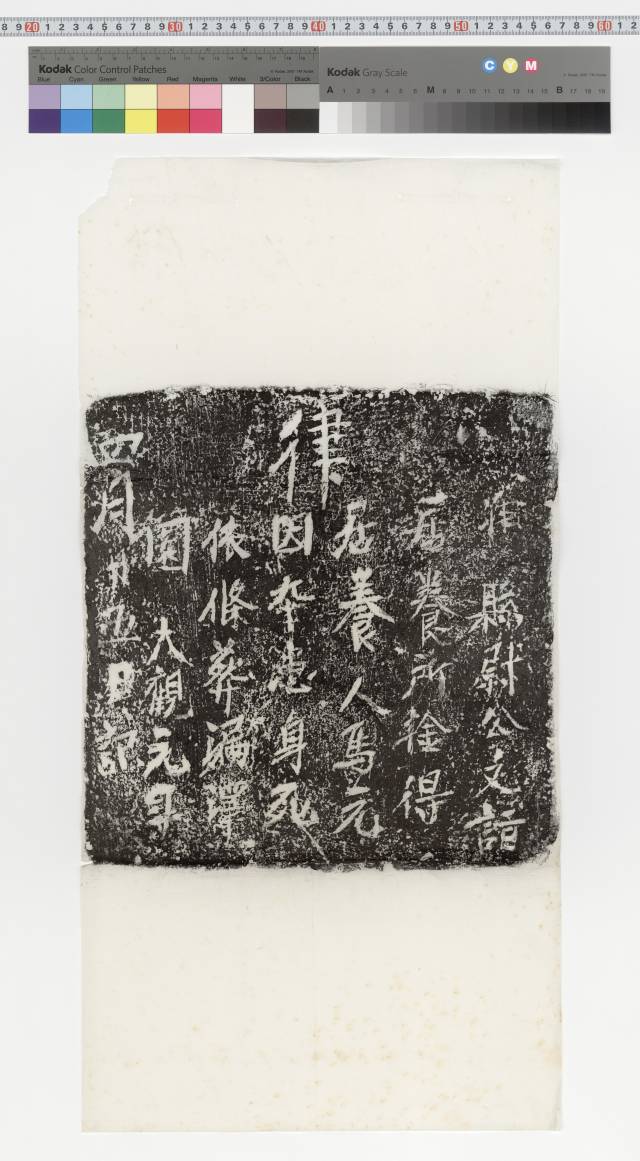 8 9 20 1 2 3 4 5 6 7 8 9 30 1 2 3 4 5 6 7 8 9 40 1 2 3 4 5 6 7 8 9 50 1 2 3 4 5 6 7 8 9 60 1 2
Kodak Color Control Patches
Blue Cyan Green Yellow Red Magenta White 3/Color Black
Kodak Gray Scale
C Y M
A 1 2 3 4 5 6 M 8 9 10 11 12 13 14 15 B 17 18 19
准縣尉公文詣
居養所拴得
居養人馬元
律
因本患身死
依條葬漏澤
園大觀元年
四月廿五日記